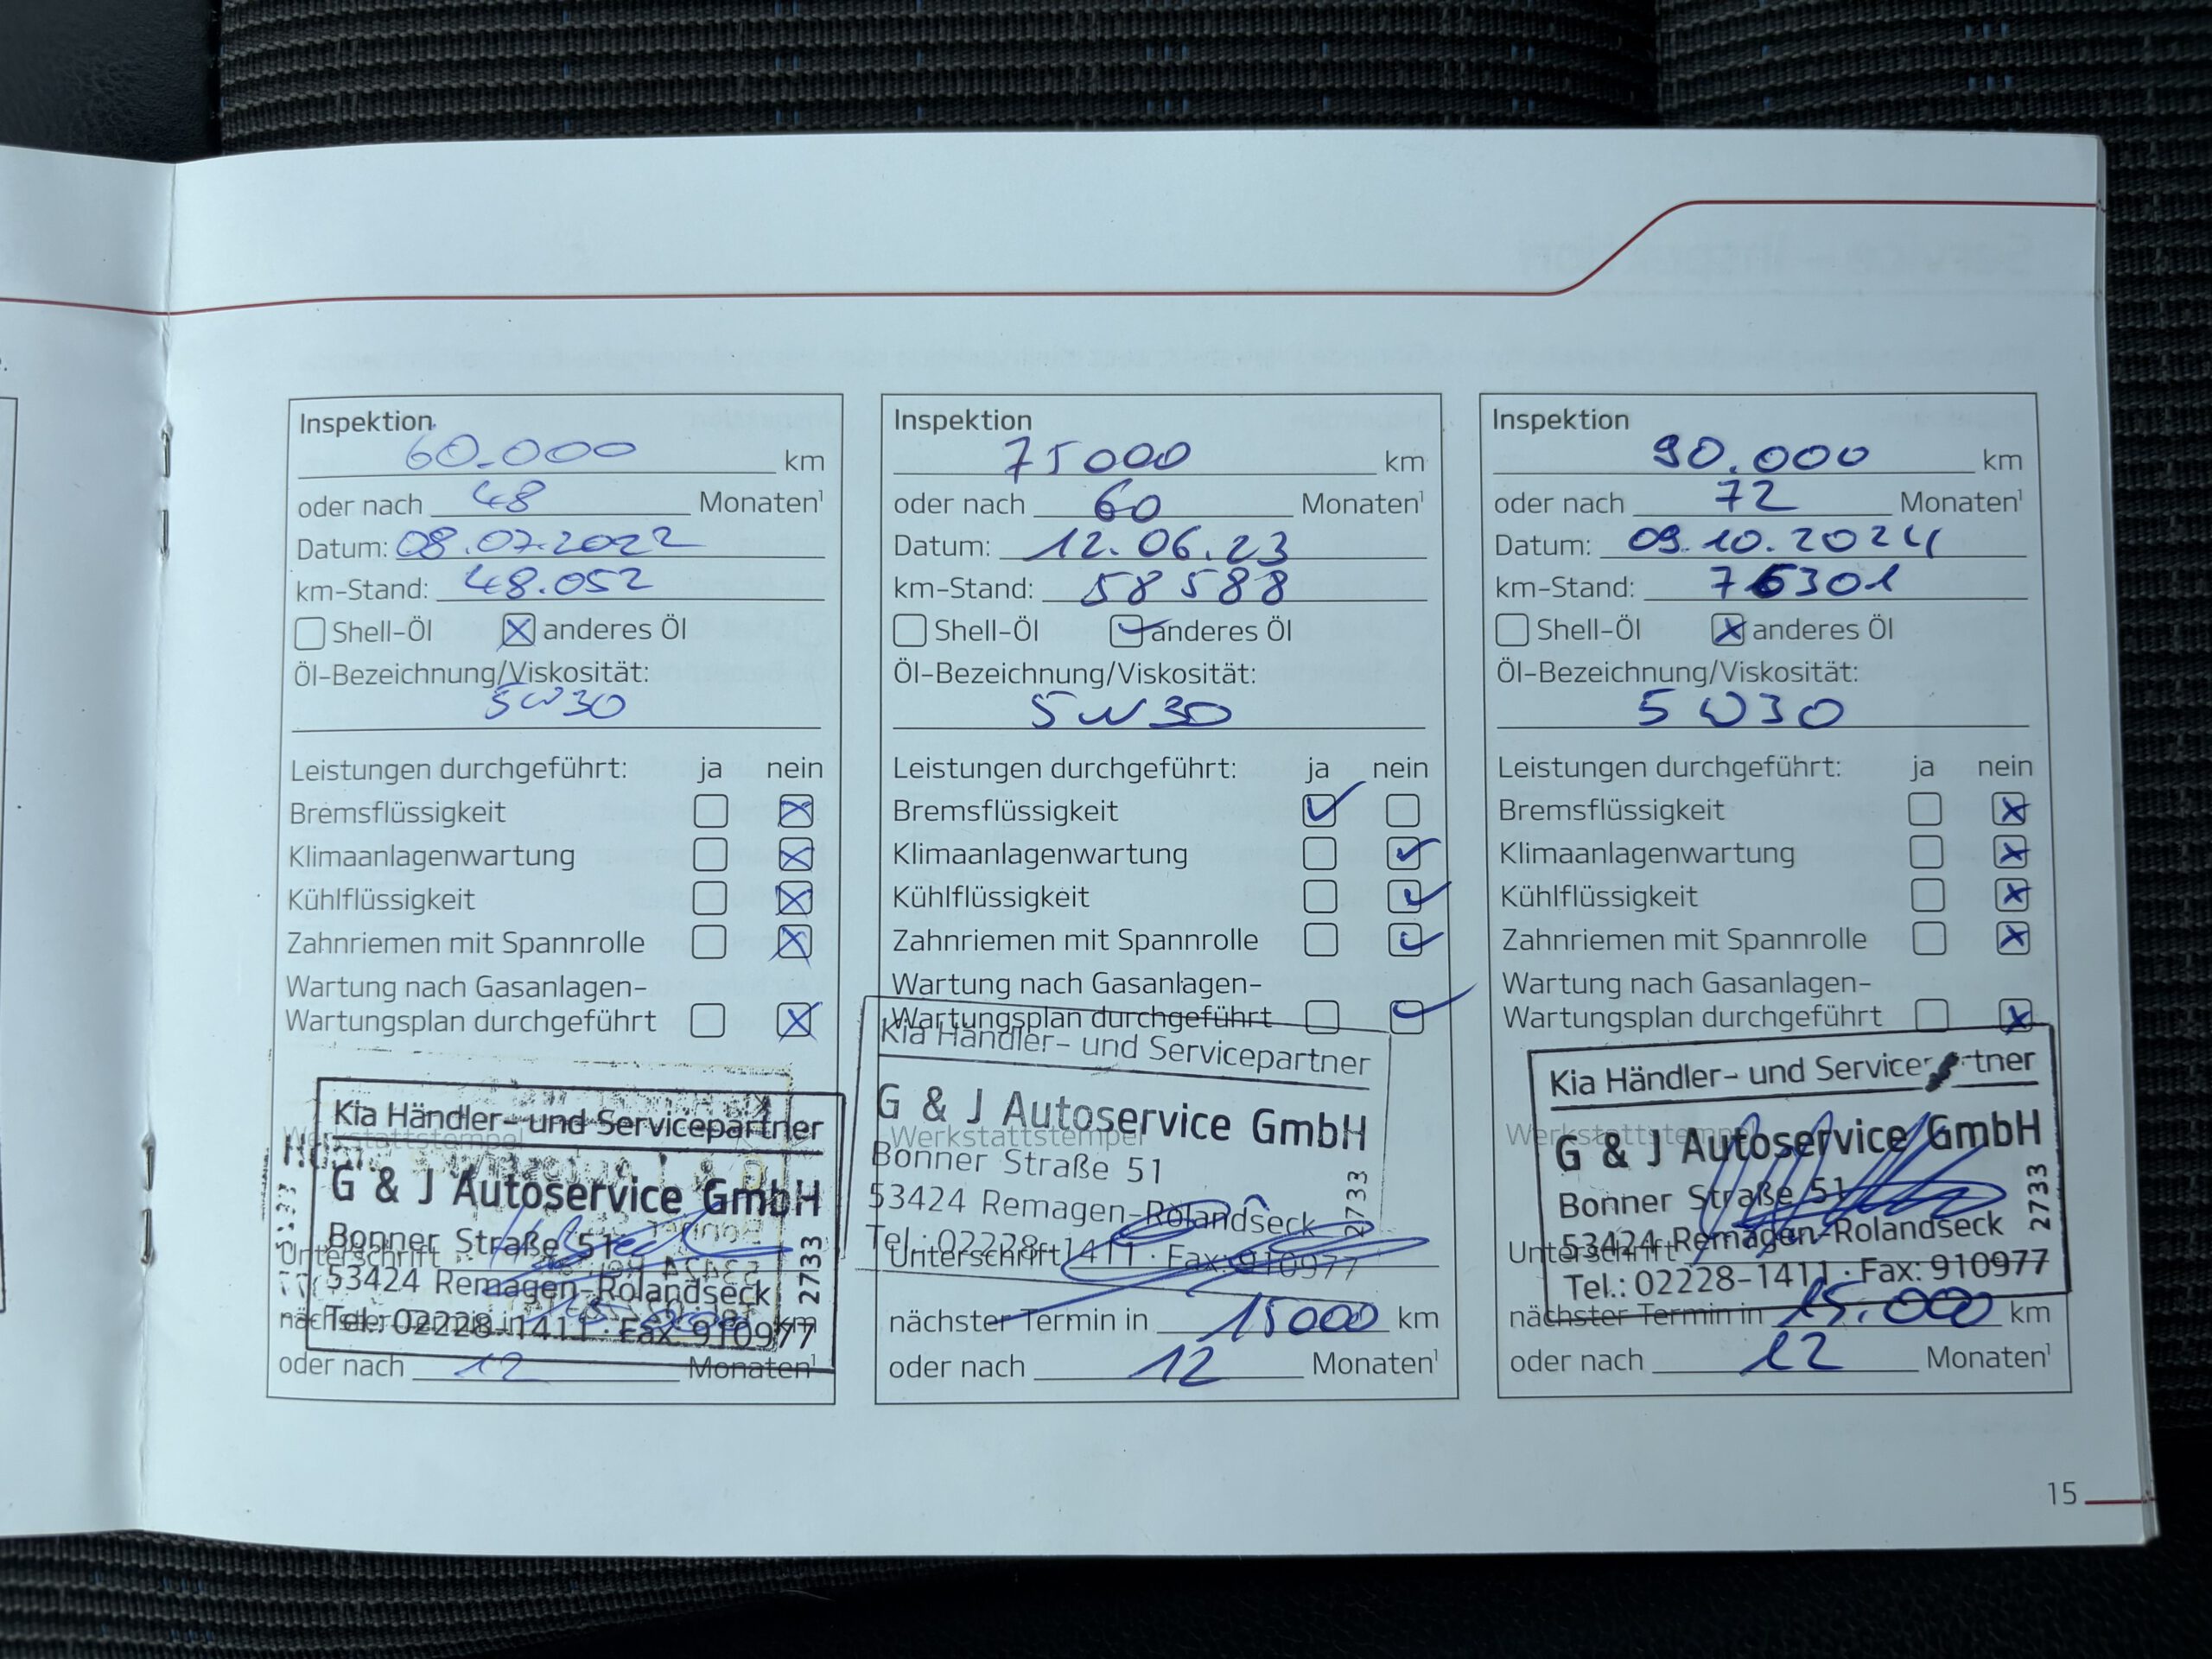 Inspektion
60.000 km
oder nach 48 Monaten¹
Datum: 08.07.2022
km-Stand: 48.052
Shell-Öl anderes Öl
Öl-Bezeichnung/Viskosität:
5W30
Leistungen durchgeführt: ja nein
Bremsflüssigkeit
Klimaanlagenwartung
Kühlflüssigkeit
Zahnriemen mit Spannrolle
Wartung nach Gasanlagen-
Wartungsplan durchgeführt
Kia Händler- und Servicepartner
Werkstattstempel
G & J Autoservice GmbH
Bonner Straße 51
Unterschrift
53424 Remagen-Rolandseck
2733
Tel.: 02228-1411 · Fax: 910977
nächster Termin in km
oder nach 12 Monaten¹
Inspektion
75000 km
oder nach 60 Monaten¹
Datum: 12.06.23
km-Stand: 58588
Shell-Öl anderes Öl
Öl-Bezeichnung/Viskosität:
5W30
Leistungen durchgeführt: ja nein
Bremsflüssigkeit
Klimaanlagenwartung
Kühlflüssigkeit
Zahnriemen mit Spannrolle
Wartung nach Gasanlagen-
Wartungsplan durchgeführt
Kia Händler- und Servicepartner
G & J Autoservice GmbH
Werkstattstempel
Bonner Straße 51
53424 Remagen-Rolandseck
2733
Tel.: 02228-1411 · Fax: 910977
Unterschrift
nächster Termin in 15000 km
oder nach 12 Monaten¹
Inspektion
90.000 km
oder nach 72 Monaten¹
Datum: 09.10.2024
km-Stand: 76301
Shell-Öl anderes Öl
Öl-Bezeichnung/Viskosität:
5W30
Leistungen durchgeführt: ja nein
Bremsflüssigkeit
Klimaanlagenwartung
Kühlflüssigkeit
Zahnriemen mit Spannrolle
Wartung nach Gasanlagen-
Wartungsplan durchgeführt
Kia Händler- und Servicepartner
Werkstattstempel
G & J Autoservice GmbH
Bonner Straße 51
53424 Remagen-Rolandseck
2733
Unterschrift
Tel.: 02228-1411 · Fax: 910977
nächster Termin in 15.000 km
oder nach 12 Monaten¹
15